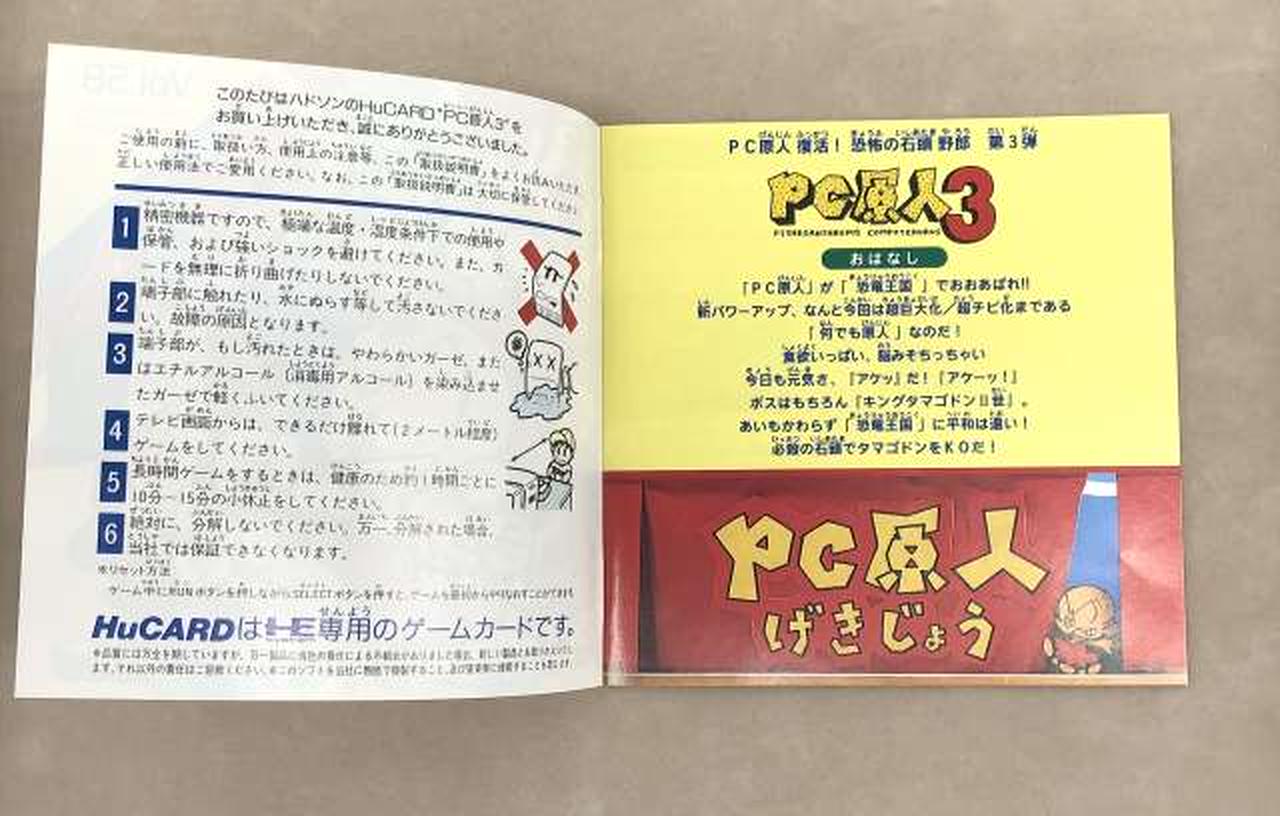 このたびはハドソンのHuCARD"PC原人3"を
お買い上げいただき、誠にありがとうございました。
ご使用の前に、取扱い方、使用上の注意等、この「取扱説明書」をよくお読みいただき
正しい使用法でご愛用ください。なお、この「取扱説明書」は大切に保管してください。
1 精密機器ですので、極端な温度・湿度条件下での使用や
保管、および強いショックを避けてください。また、カ
ードを無理に折り曲げたりしないでください。
2 端子部に触れたり、水にぬらす等して汚さないでくださ
い。故障の原因となります。
3 端子部が、もし汚れたときは、やわらかいガーゼ、また
はエチルアルコール(消毒用アルコール)を染み込ませ
たガーゼで軽くふいてください。
4 テレビ画面からは、できるだけ離れて(2メートル程度)
ゲームをしてください。
5 長時間ゲームをするときは、健康のため約1時間ごとに
10分~15分の小休止をしてください。
6 絶対に、分解しないでください。万一、分解された場合、
当社では保証できなくなります。
※リセット方法
ゲーム中にRUNボタンを押しながらSELECTボタンを押すと、ゲームを最初からやりなおすことができます
HuCARDはHE専用のゲームカードです。
PC原人 復活! 恐怖の石頭 野郎 第3弾
PC原人3
PITHECANTHROPUS COMPUTERURUS
おはなし
「PC原人」が「恐竜王国」でおおあばれ!!
新パワーアップ、なんと今回は超巨大化/超チビ化まである
「何でも原人」なのだ!
食欲いっぱい、脳みそちっちゃい
今日も元気さ、『アケッ』だ!『アケーッ!』
ボスはもちろん『キングタマゴドンⅡ世』。
あいもかわらず「恐竜王国」に平和は遠い!
必殺の石頭でタマゴドンをKOだ!
PC原人
げきじょう